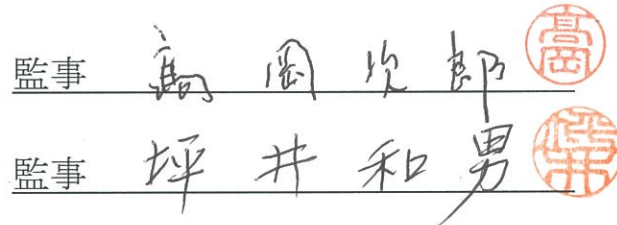 監事 髙岡次郎 髙岡
監事 坪井和男 坪井